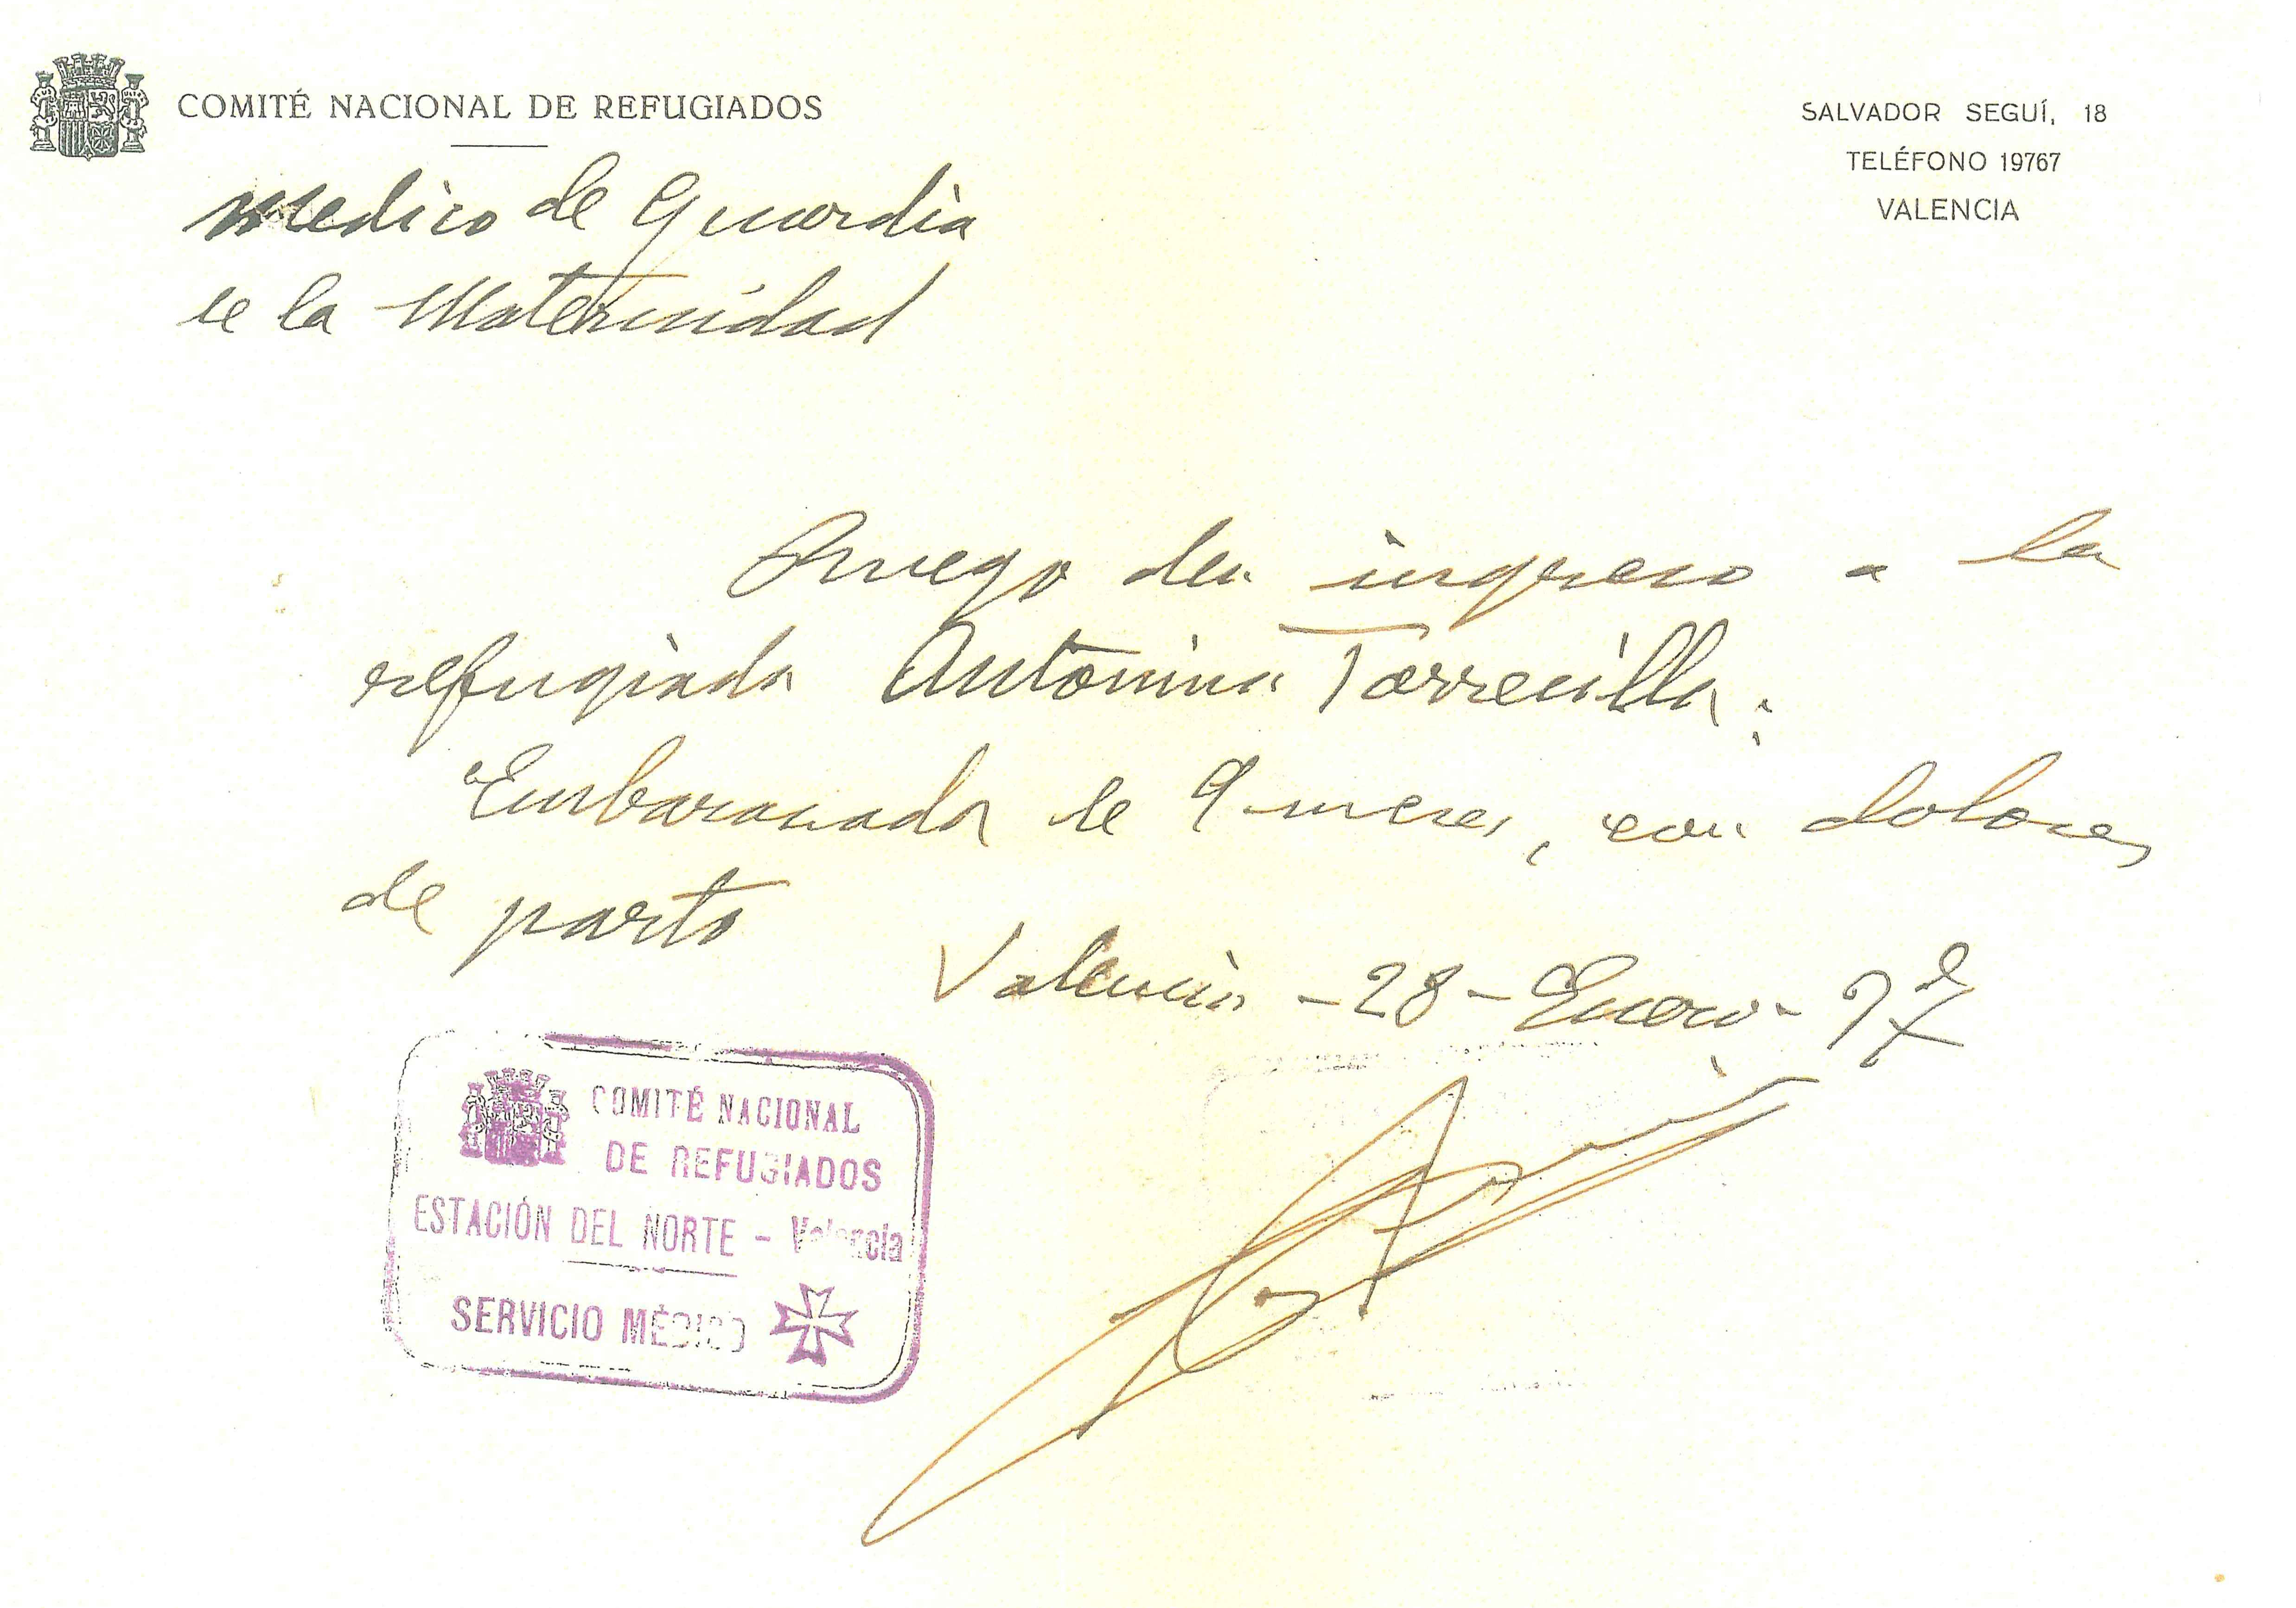 COMITÉ NACIONAL DE REFUGIADOS
SALVADOR SEGUÍ, 18
TELÉFONO 19767
VALENCIA
Medico de Guardia
de la Maternidad
Ruego den ingreso a la
refugiada Antonina Torrecilla.
Embarazada de 9 meses, con dolores
de parto
Valencia - 28 - Enero -
COMITÉ NACIONAL
DE REFUGIADOS
ESTACIÓN DEL NORTE - Valencia
SERVICIO MÉDICO